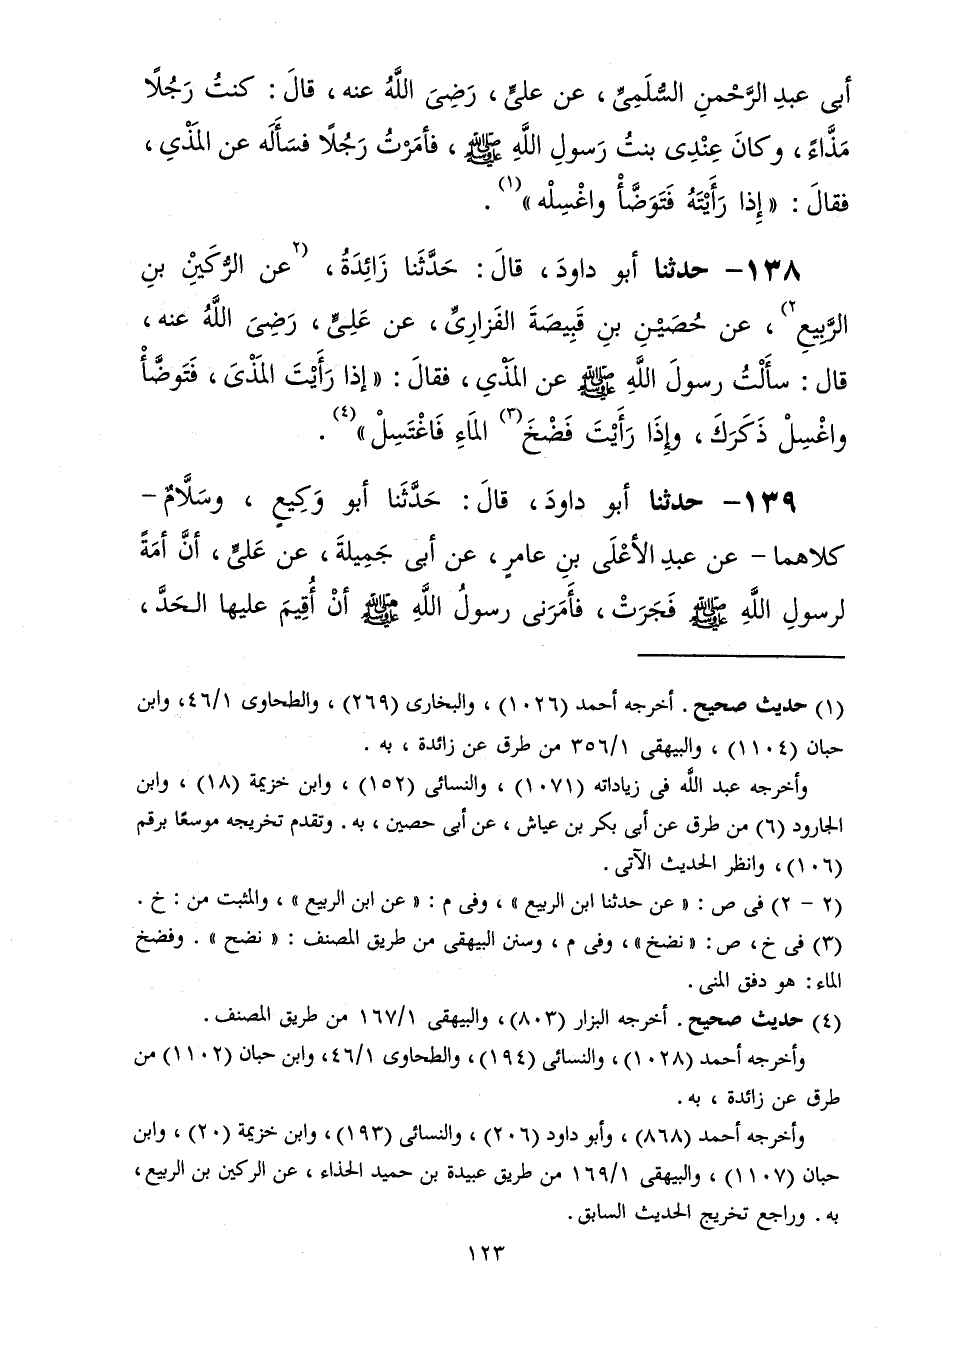 أبى عبدِ الرَّحْمنِ السُّلَمِىِّ ، عن علىٍّ ، رَضِىَ اللَّهُ عنه ، قالَ : كنتُ رَجُلًا
مَذَّاءً ، وكانَ عِنْدِى بنتُ رَسولِ اللَّهِ ﷺ ، فأمَرْتُ رَجُلًا فسَأَلَه عن المَذْىِ ،
فقالَ : « إِذا رَأَيْتَهُ فَتَوَضَّأْ واغْسِلْه »(١) .
١٣٨- حدثنا أبو داودَ ، قالَ : حَدَّثَنا زَائِدَةُ ، (٢عن الرُّكَيْنِ بنِ
الرَّبِيعِ٢) ، عن حُصَيْنِ بنِ قَبِيصَةَ الفَزارِىِّ ، عن عَلِىٍّ ، رَضِىَ اللَّهُ عنه ،
قال : سأَلْتُ رسولَ اللَّهِ ﷺ عن المَذْىِ ، فقالَ : « إذا رَأَيْتَ المَذْىَ ، فَتَوضَّأْ
واغْسِلْ ذَكَرَكَ ، وإِذَا رَأَيْتَ فَضْخَ(٣) المَاءِ فَاغْتَسِلْ »(٤) .
١٣٩- حدثنا أبو داودَ ، قالَ : حَدَّثَنا أبو وَكِيعٍ ، وسَلَّامٌ -
كلاهما - عن عبدِ الأعْلَى بنِ عامرٍ ، عن أبى جَمِيلةَ ، عن عَلىٍّ ، أنَّ أمَةً
لرسولِ اللَّهِ ﷺ فَجَرَتْ ، فأَمَرَنى رسولُ اللَّهِ ﷺ أنْ أُقِيمَ عليها الحَدَّ ،
(١) حديث صحيح . أخرجه أحمد (١٠٢٦) ، والبخارى (٢٦٩) ، والطحاوى ٤٦/١ ، وابن
حبان (١١٠٤) ، والبيهقى ٣٥٦/١ من طرق عن زائدة ، به .
وأخرجه عبد اللَّه فى زياداته (١٠٧١) ، والنسائى (١٥٢) ، وابن خزيمة (١٨) ، وابن
الجارود (٦) من طرق عن أبى بكر بن عياش ، عن أبى حصين ، به . وتقدم تخريجه موسعًا برقم
(١٠٦) ، وانظر الحديث الآتى .
(٢ - ٢) فى ص : « عن حدثنا ابن الربيع » ، وفى م : « عن ابن الربيع » ، والمثبت من : خ .
(٣) فى خ ، ص : « نضخ » ، وفى م ، وسنن البيهقى من طريق المصنف : « نضح » . وفضخ
الماء : هو دفق المنى .
(٤) حديث صحيح . أخرجه البزار (٨٠٣) ، والبيهقى ١٦٧/١ من طريق المصنف .
وأخرجه أحمد (١٠٢٨) ، والنسائى (١٩٤) ، والطحاوى ٤٦/١ ، وابن حبان (١١٠٢) من
طرق عن زائدة ، به .
وأخرجه أحمد (٨٦٨) ، وأبو داود (٢٠٦) ، والنسائى (١٩٣) ، وابن خزيمة (٢٠) ، وابن
حبان (١١٠٧) ، والبيهقى ١٦٩/١ من طريق عبيدة بن حميد الحذاء ، عن الركين بن الربيع ،
به . وراجع تخريج الحديث السابق .
١٢٣